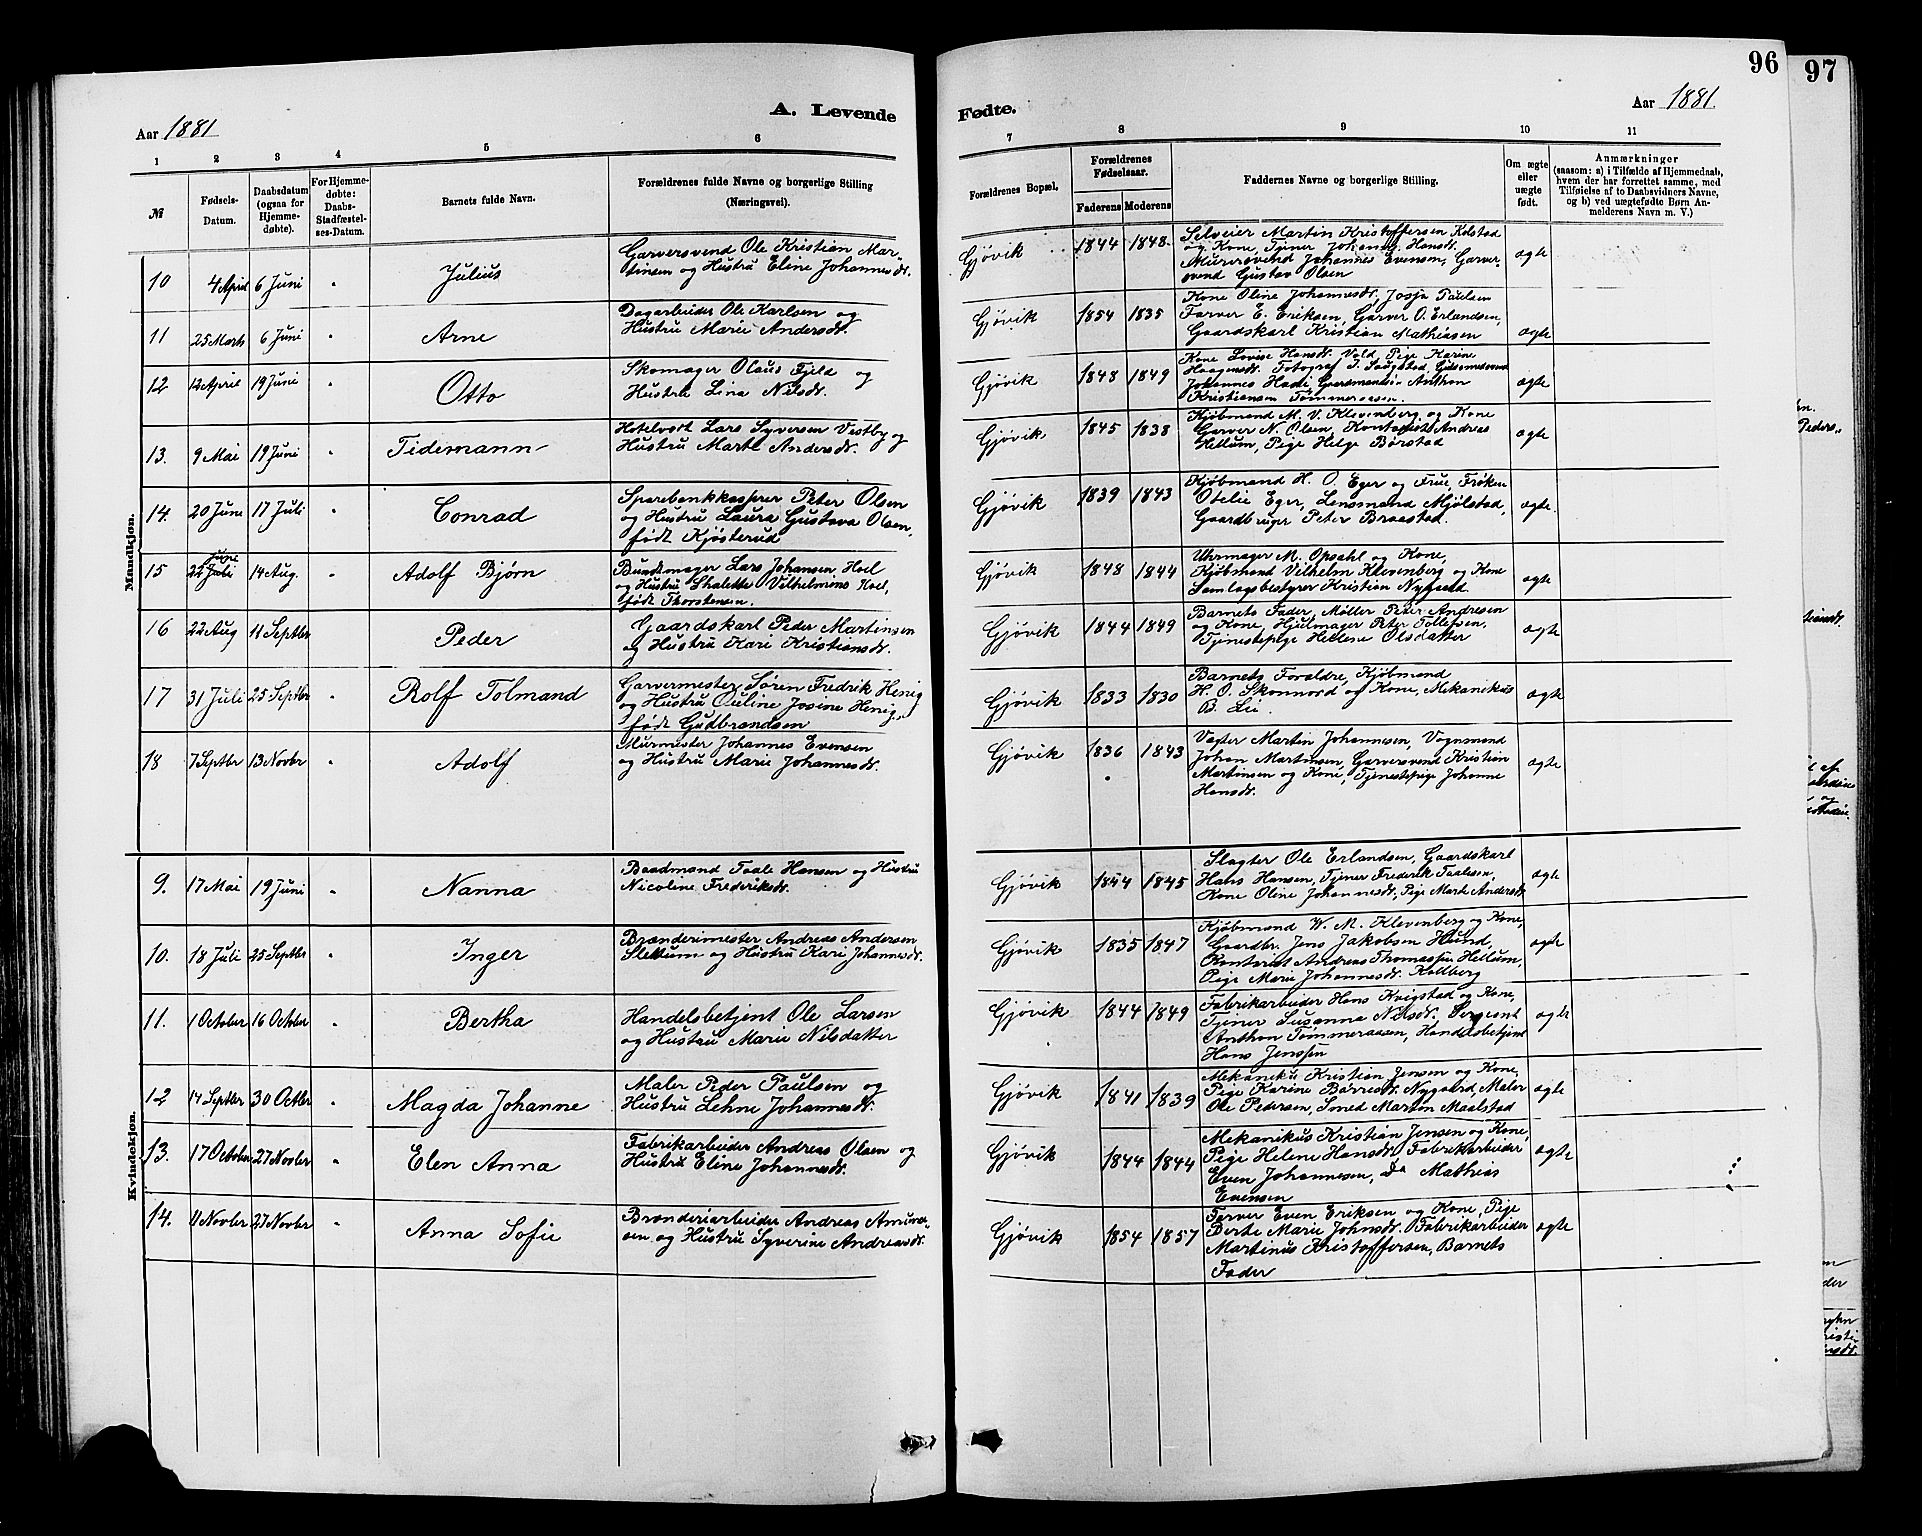 96
97
A. Levende Fødte.
Aar 1881
Aar 1881
1 2 3 4 5 6 7 8 9 10 11
№
Fødsels-Datum.
Daabsdatum (ogsaa for Hjemme-døbte).
For Hjemme-døbte: Daabs-Stadfæstel-ses-Datum.
Barnets fulde Navn.
Forældrenes fulde Navne og borgerlige Stilling (Næringsvei).
Forældrenes Bopæl.
Forældrenes Fødselsaar.
Faderens Moderens
Faddernes Navne og borgerlige Stilling.
Om ægte eller uægte født.
Anmærkninger
(saasom: a) i Tilfælde af Hjemmedaab,
hvem der har forrettet samme, med
Tilføielse af to Daabsvidners Navne,
og b) ved uægtefødte Børn An-
melderens Navn m. V.)
Mandkjøn.
10 4 April 6 Juni " Julius
Garversvend Ole Kristian Mar-
tinsen og Hustru Eline Johannesdt.
Gjøvik 1844 1848
Selveier Martin Kristoffersen Kolstad
og Kone, Tjener Johanne Hansdt.
Murersvend Johannes Evensen, Garver-
svend Gustav Olsen
ægte
11 25 Marts 6 Juni " Arne
Dagarbeider Ole Karlsen og
Hustru Marie Andersdt.
Gjøvik 1854 1835
Kone Oline Johannesdt, Josja Paulsen
Farver E. Eriksen, Garver O. Erlandsen,
Gaardskarl Kristian Mathiasen
ægte
12 12 April 19 Juni " Otto
Skomager Olaus Fjeld og
Hustru Lina Nilsdt.
Gjøvik 1848 1849
Kone Lovise Hansdt. Vold, Pige Karine
Haagensdt. Fotograf J. Saugstad, Guldsmedsvend
Johannes Hadi, Anthon
Kristiansen Tømmeraasen.
ægte
13. 9 Mai 19 Juni " Tidemann
Hotelvært Lars Syversen Vestby og
Hustru Marte Andersdt.
Gjøvik 1845 1838
Kjøbmand M. V. Klevenberg og Kone
Garver N. Olsen, Kontorist Andreas
Hellum, Pige Helge Børstad
ægte
14. 20 June 17 Juli " Conrad
Sparebankkasserer Peter Olsen
og Hustru Laura Gustava Olsen,
født Kjøsterud
Gjøvik 1839 1843
Kjøbmand H. O. Eger og Frue, Frøken
Otelie Eger, Lensmand Mjølstad,
Gaardbruger Peter Braastad.
ægte.
15 22 Juli Juni 14 Aug. " Adolf Bjørn
Buntmager Lars Johansen Hoel
og Hustru Shalotte Vilhelmine Hoel,
født Thorstensen.
Gjøvik 1848 1844
Uhrmager M. Opsahl og Kone,
Kjøbmand Vilhelm Klevenberg og Kone
Samlagsbestyrer Kristian Nygaard
ægte
16 22 Aug 11 Septbr " Peder
Gaardskarl Peder Martinsen
og Hustru Kari Kristiansdt.
Gjøvik 1844 1849
Barnets Fader, Møller Peter Andresen
og Kone, Hjulmager Peter Tollefsen,
Tjenestepige Helene Olsdatter
ægte
17 31 Juli 25 Septbr " Rolf Tolmand
Garvermester Søren Fredrik Henig
og Hustru Juline Josine Henig,
født Gudbrandsen
Gjøvik 1833 1830
Barnets Foraldre, Kjøbmand
H. O. Skonnord og Kone, Mekanikus
B. Lie.
ægte
18 7 Septbr 13 Novbr " Adolf
Murmester Johannes Evensen
og Hustru Marie Johannesdt.
Gjøvik 1836 1843
Vagter Martin Johannesen, Vognmand
Johan Martinsen, Garversvend Kristian
Martinsen og Kone, Tjenestepige Johanne
Hansdt.
ægte
Kvindekjøn.
9. 17 Mai 19 Juni " Nanna
Baadmand Taale Hansen og Hustru
Nicoline Frederiksdt.
Gjøvik 1844 1845
Slagter Ole Erlandsen, Gaardskarl
Hans Hansen, Tjener Frederik Taalesen,
Kone Oline Johannesdt, Pige Marte Andersdt
ægte
10. 18 Juli 25 Septbr " Inger
Brænderimester Andreas Andersen
Slettum og Hustru Kari Johannesdt.
Gjøvik 1835 1847
Kjøbmand W. M. Klevenberg og Kone,
Gaardbr. Jens Jakobsen Hund,
Kontorist Andreas Thomassen Hellum,
Pige Marie Johannesdt. Kolberg
ægte
11. 1 October 16 October " Bertha
Handelsbetjent Ole Larsen
og Hustru Marie Nilsdatter
Gjøvik 1844 1849
Fabrikarbeider Hans Kvigstad og Kone,
Tjener Susanna Nilsdt. Sergeant
Anthon Tømmeraasen, Handelsbetjent
Hans Jenssen
ægte
12 14 Septbr 30 Octbr " Magda Johanne
Maler Peder Paulsen og
Hustru Lehne Johannesdt.
Gjøvik 1841 1839
Mekanikus Kristian Jensen og Kone,
Pige Karine Børresdt. Nygaard, Maler
Ole Pedersen, Smed Martin Maalstad
ægte
13. 17 October 27 Novbr " Elen Anna
Fabrikarbeider Andreas Olsen og
Hustru Eline Johannesdt.
Gjøvik 1844 1844
Mekanikus Kristian Jensen og Kone,
Pige Helene Hansdt. Fabrikarbeider
Even Johannesen, Do Mathias
Evensen
ægte
14. 11 Novber 27 Novber " Anna Sofie
Brænderiarbeider Andreas Amund-
sen og Hustru Syverine Andreasdt.
Gjøvik 1854 1857
Farver Even Eriksen og Kone, Pige
Berte Marie Johnsdt. Fabrikarbeider
Martinus Kristoffersen, Barnets
Fader
ægte